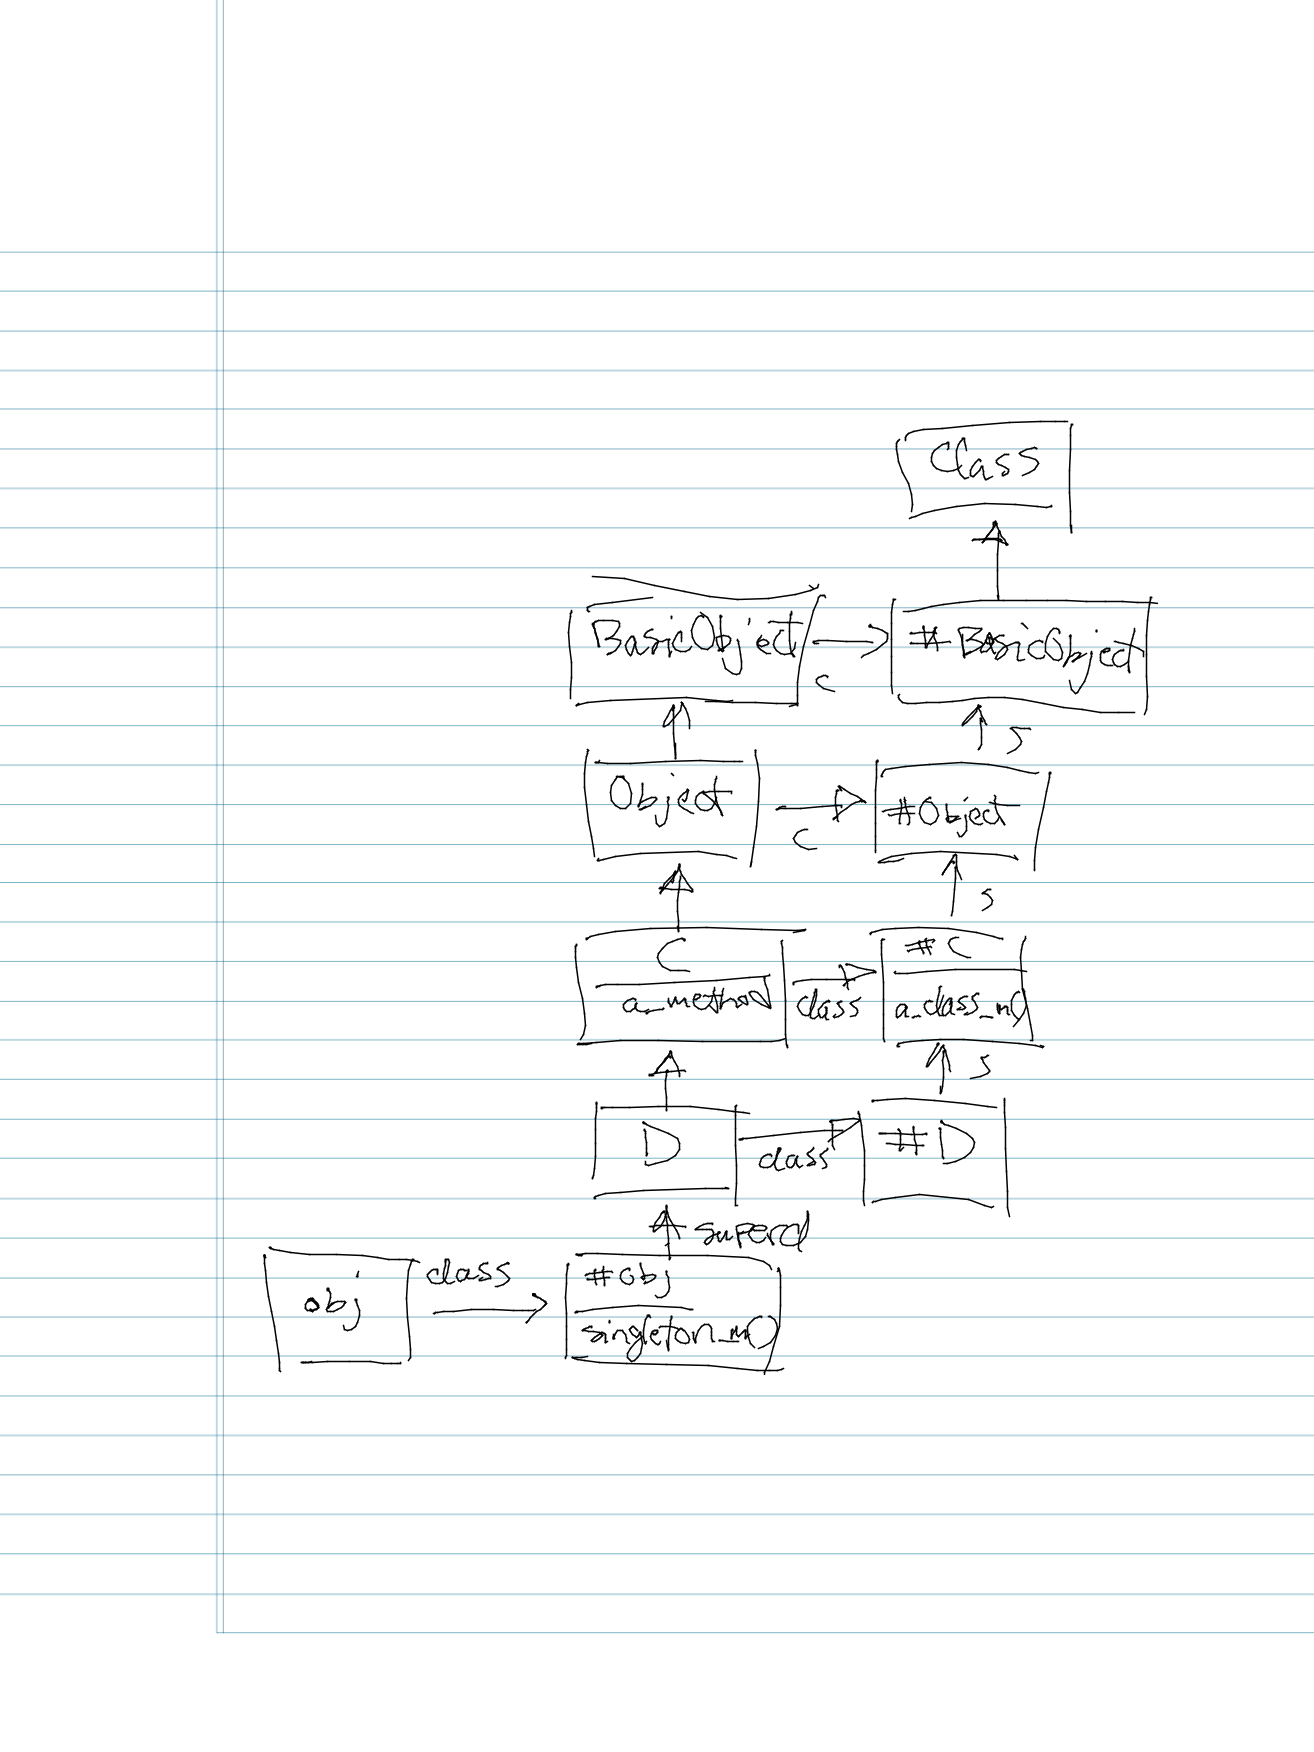 Class
BasicObject
c
#BasicObject
s
Object
c
#Object
s
C
a_method
class
#C
a_class_m()
s
D
class
#D
supercl
obj
class
#obj
singleton_m()